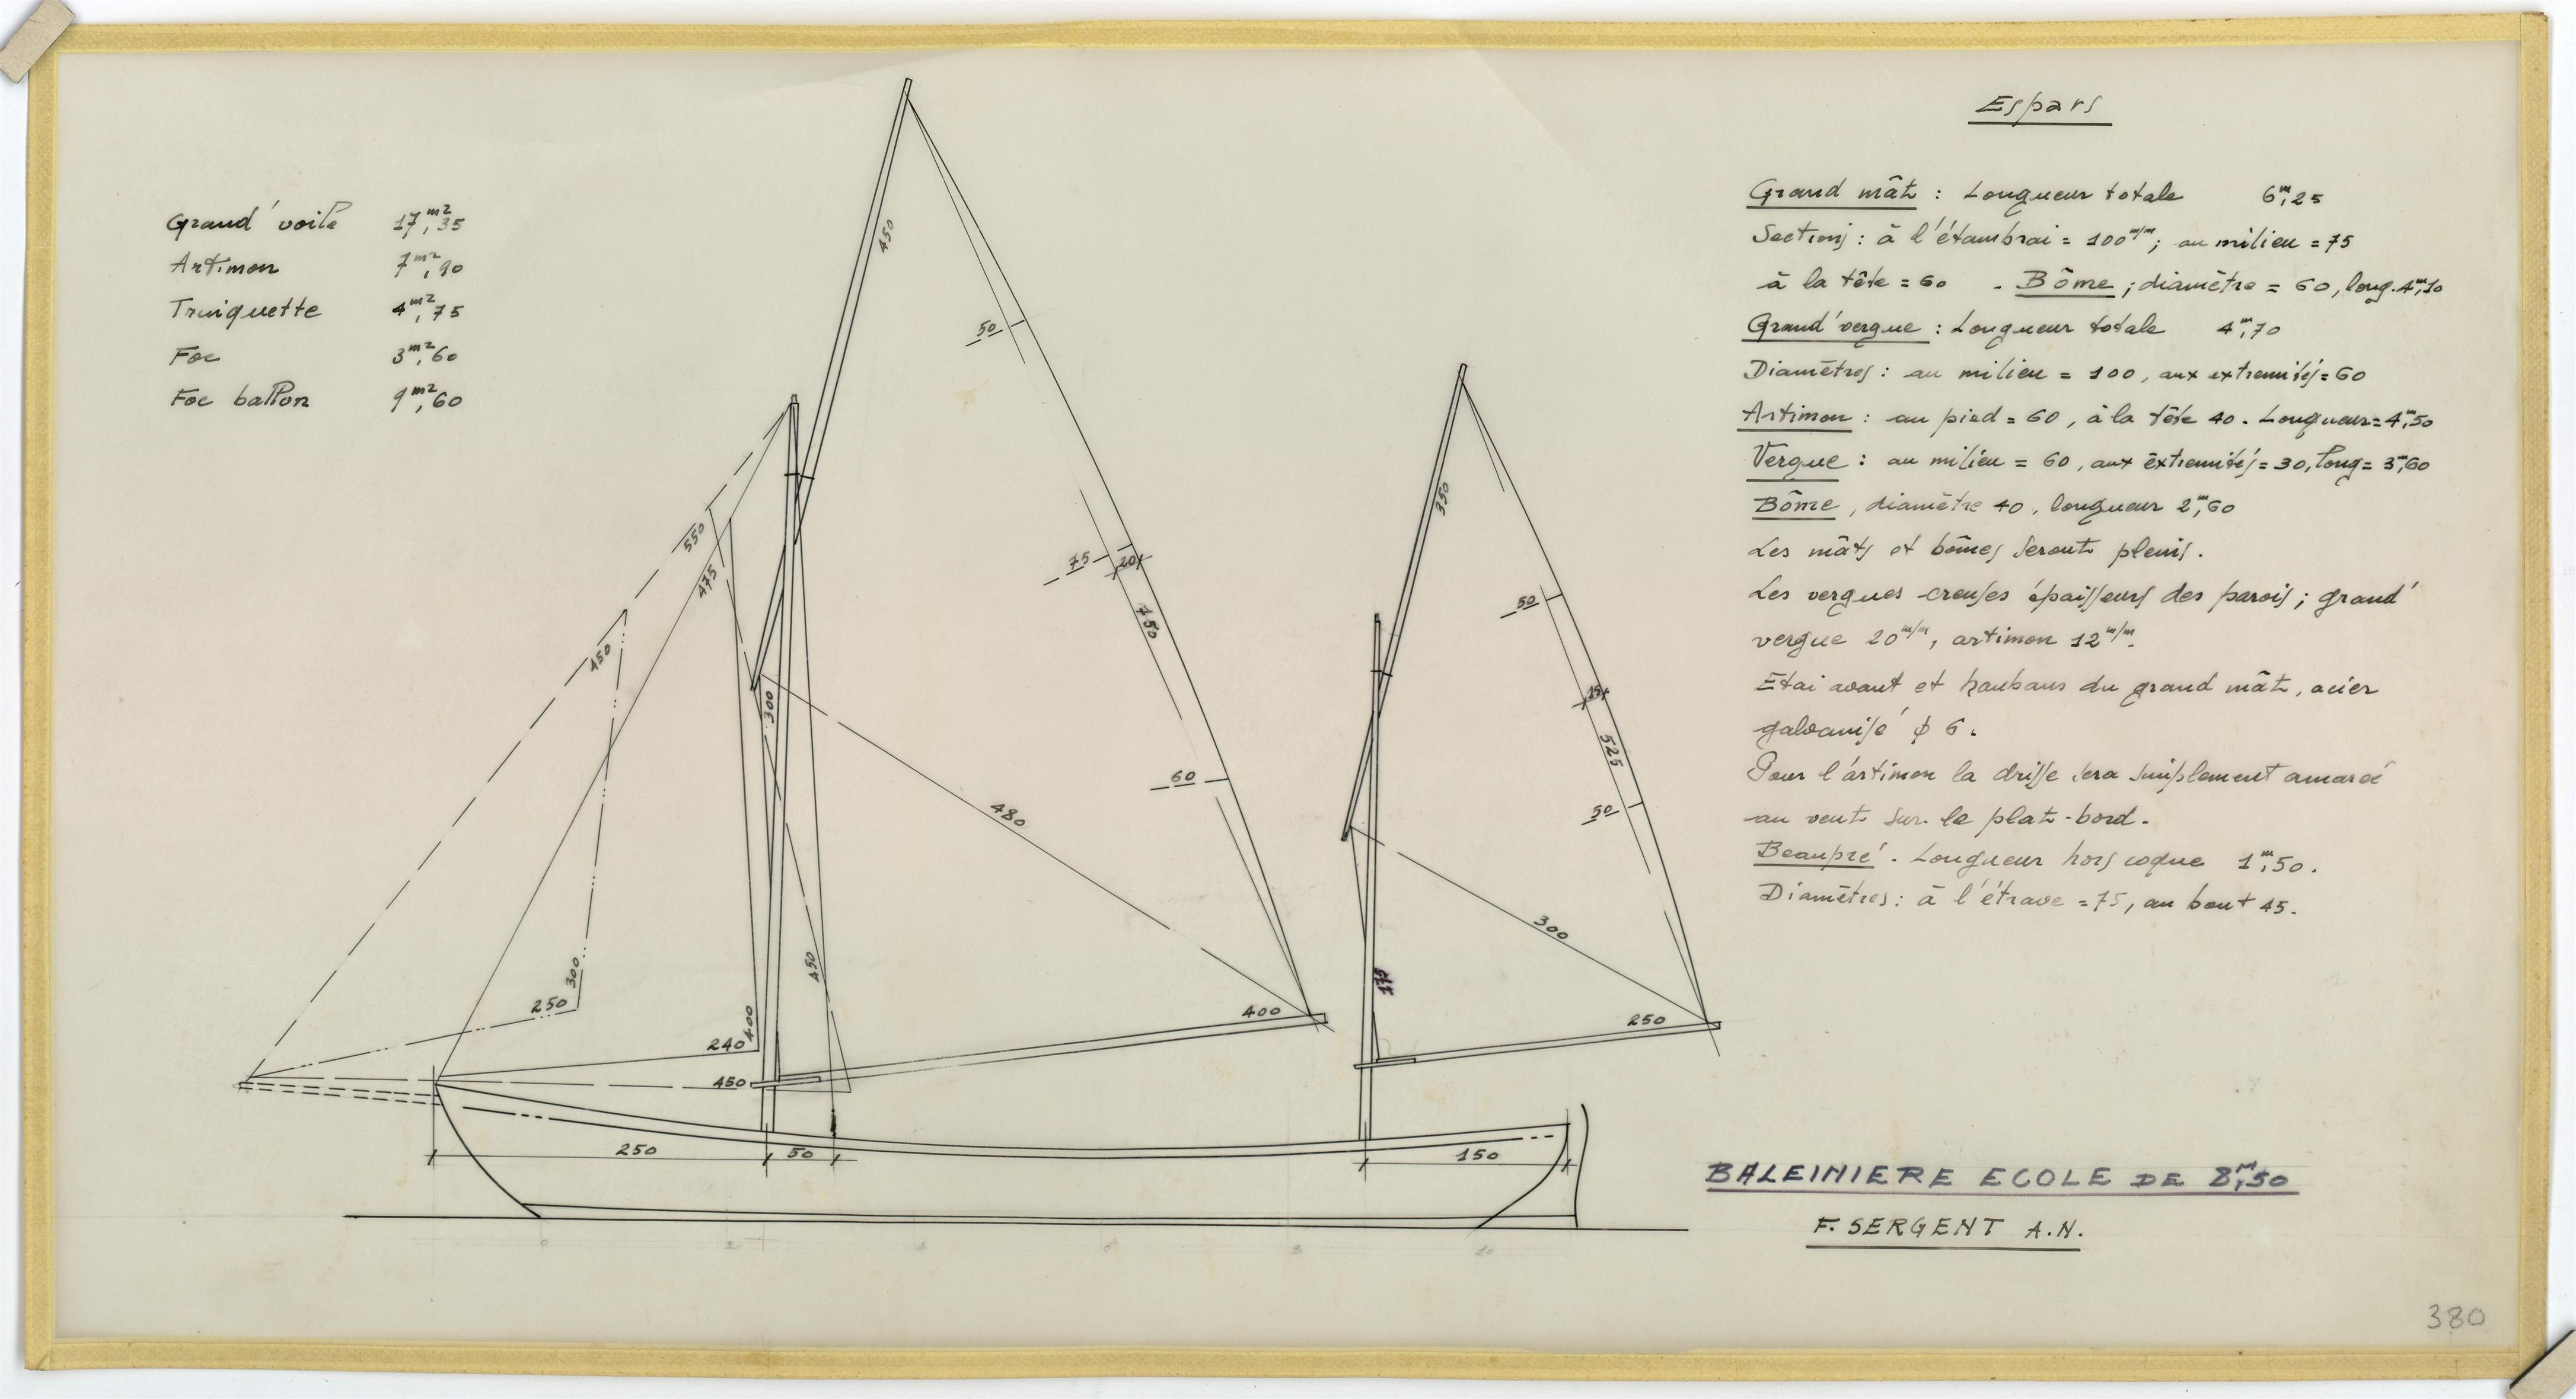 Grand'voile 17m²,35
Artimon 7m²,90
Trinquette 4m²,75
Foc 3m²,60
Foc ballon 9m²,60
450
50
75
20
450
60
480
400
550
475
450
300
250
300
240
400
450
450
250
50
150
350
50
525
50
300
175
250
0
2
4
6
8
10
Espars
Grand mât : Longueur totale 6m,25
Sections : à l'étambrai = 100m/m ; au milieu = 75
à la tête = 60 - Bôme ; diamètre = 60, long. 4m,10
Grand'vergue : Longueur totale 4m,70
Diamètres : au milieu = 100, aux extremités = 60
Artimon : au pied = 60, à la tête 40. Longueur = 4m,50
Vergue : au milieu = 60, aux extremités = 30, long = 3m,60
Bôme, diamètre 40, longueur 2m,60
Les mâts et bômes seront pleins.
Les vergues creuses épaisseurs des parois ; grand'
vergue 20m/m, artimon 12m/m.
Etai avant et haubans du grand mât, acier
galvanisé ϕ 6.
Pour l'artimon la drisse sera simplement amarée
au vent sur le plat-bord.
Beaupré. Longueur hors coque 1m,50.
Diamètres : à l'étrave = 75, au bout 45.
BALEINIERE ECOLE DE 8m,50
F. SERGENT A.N.
380